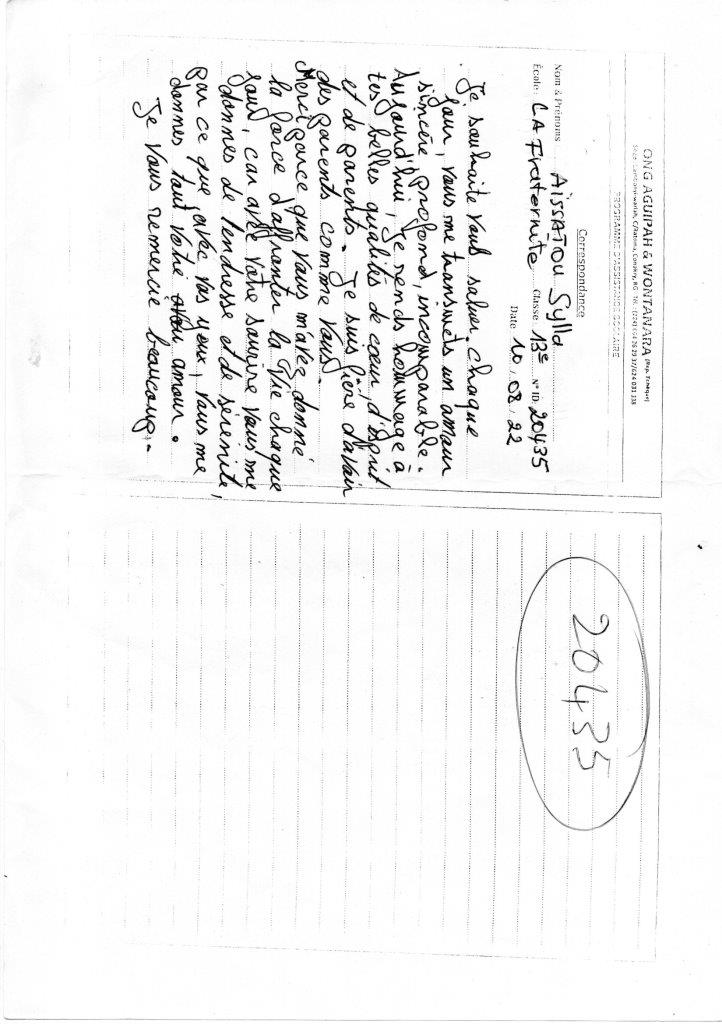 ONG AGUIPAH & WONTANARA
PROGRAMME D'ASSISTANCE SCOLAIRE
Correspondance
Nom & Prénoms AissATOU Sylla
École: LA Fraternité Classe 13e N° ID 20435
Date 10.08.22
Je souhaite vous saluer. chaque
jour, vous me transmets un amour
sincère, profond, incomparable.
Aujourd'hui, Je rends hommage à
tes belles qualités de coeur, d'esprit
et de parents. Je suis fière d'avoir
des parents comme Vous.
Merci parce que vous m'avez donné
la force d'affronter la Vie chaque
jour, car avec votre sourire vous me
donnes de tendresse et de sérénité,
par ce que, avec vos yeux, vous me
donnes tout votre amour.
Je vous remercie beaucoup.
20435